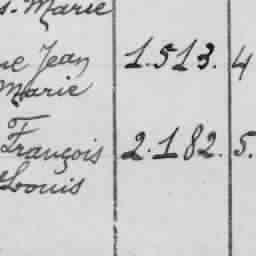 s-Marie
ne Jean 1.513. 4
Marie
François 2.182. 5.
Louis